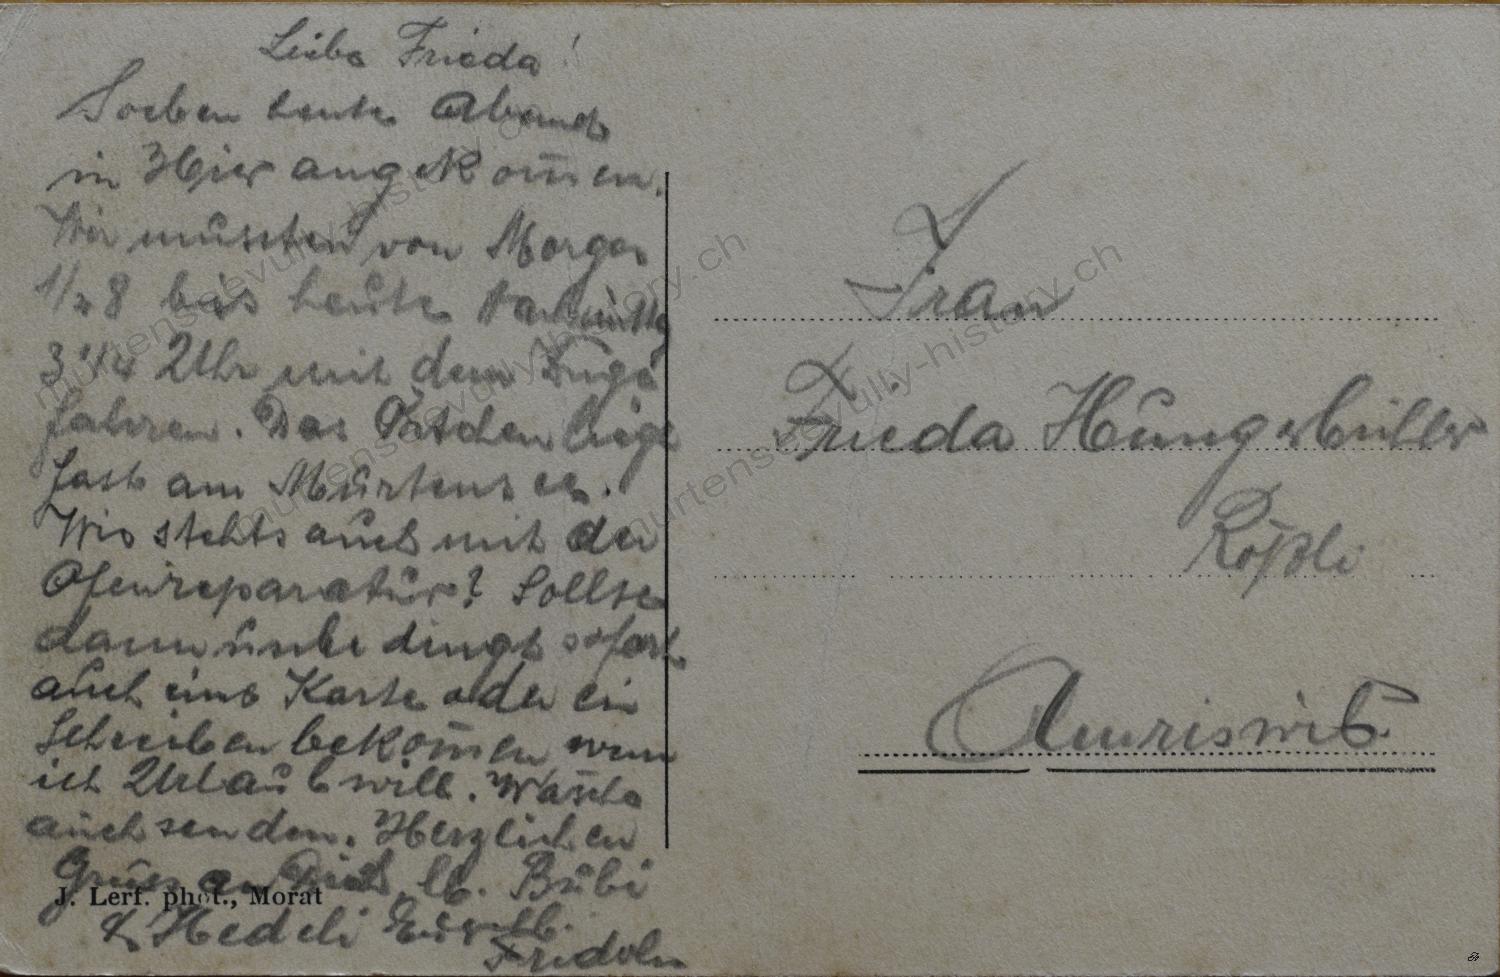 Liebe Frieda!
Soeben heute Abend
in Hier angekom̅en.
Wir mussten von Morgen
1/2 8 bis heute Nachmittg
3 1/4 Uhr mit dem Zuge
fahren. Das Städchen liegt
fast am Murtensee.
Wie stehts auch mit der
Ofenreparatur? Sollte
dann unbedingt sofort
auch eine Karte oder ein
Schreiben bekom̅en wenn
ich Urlaub will. Wäsche
auch senden. Herzlichen
Gruss an Dich, lb. Bubi
& Hedeli Euer lb.
Fridolin
J. Lerf. phot., Morat
Frau
Frieda Hungerbühler
Rößli
Amriswil.
murtenseevully-history.ch
murtenseevully-history.ch
murtenseevully-history.ch